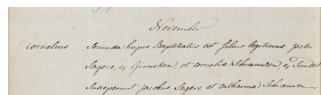 November
Cornelius Secunda hujus Baptizatus est filius legitimus petri
Sagers, ex et cornelia Schramen ex
Susceperunt jacobus Sagers et catharina Schramen.